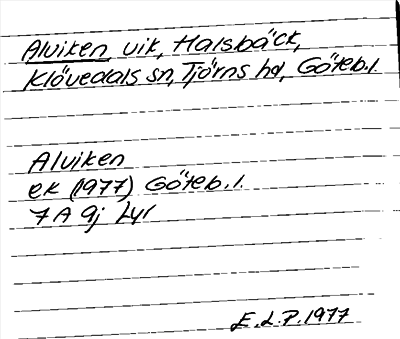 Alviken vik, Halsbäck,
Klövedals sn, Tjörns hd, Göteb. l.
Alviken
ek (1977) Göteb. l.
7 A 9j Lyr
E.L.P. 1977